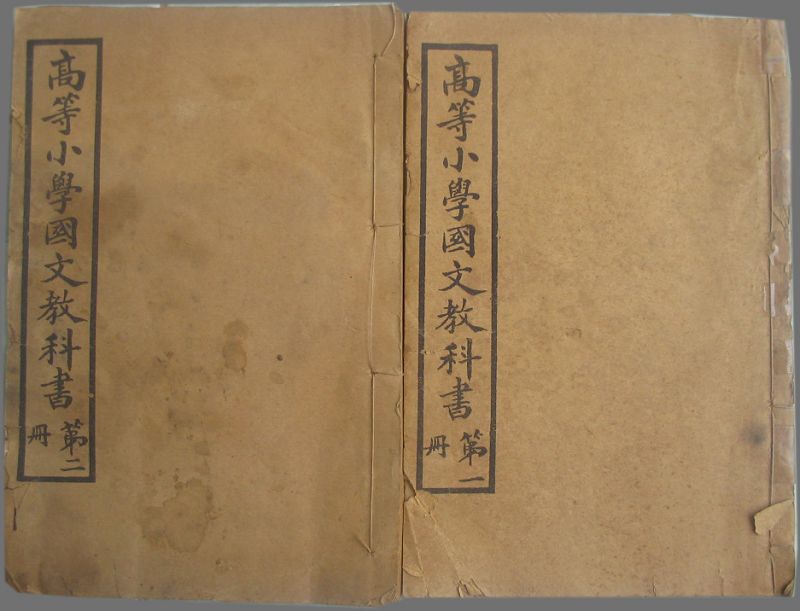 高等小學國文教科書
第一冊
高等小學國文教科書
第二冊